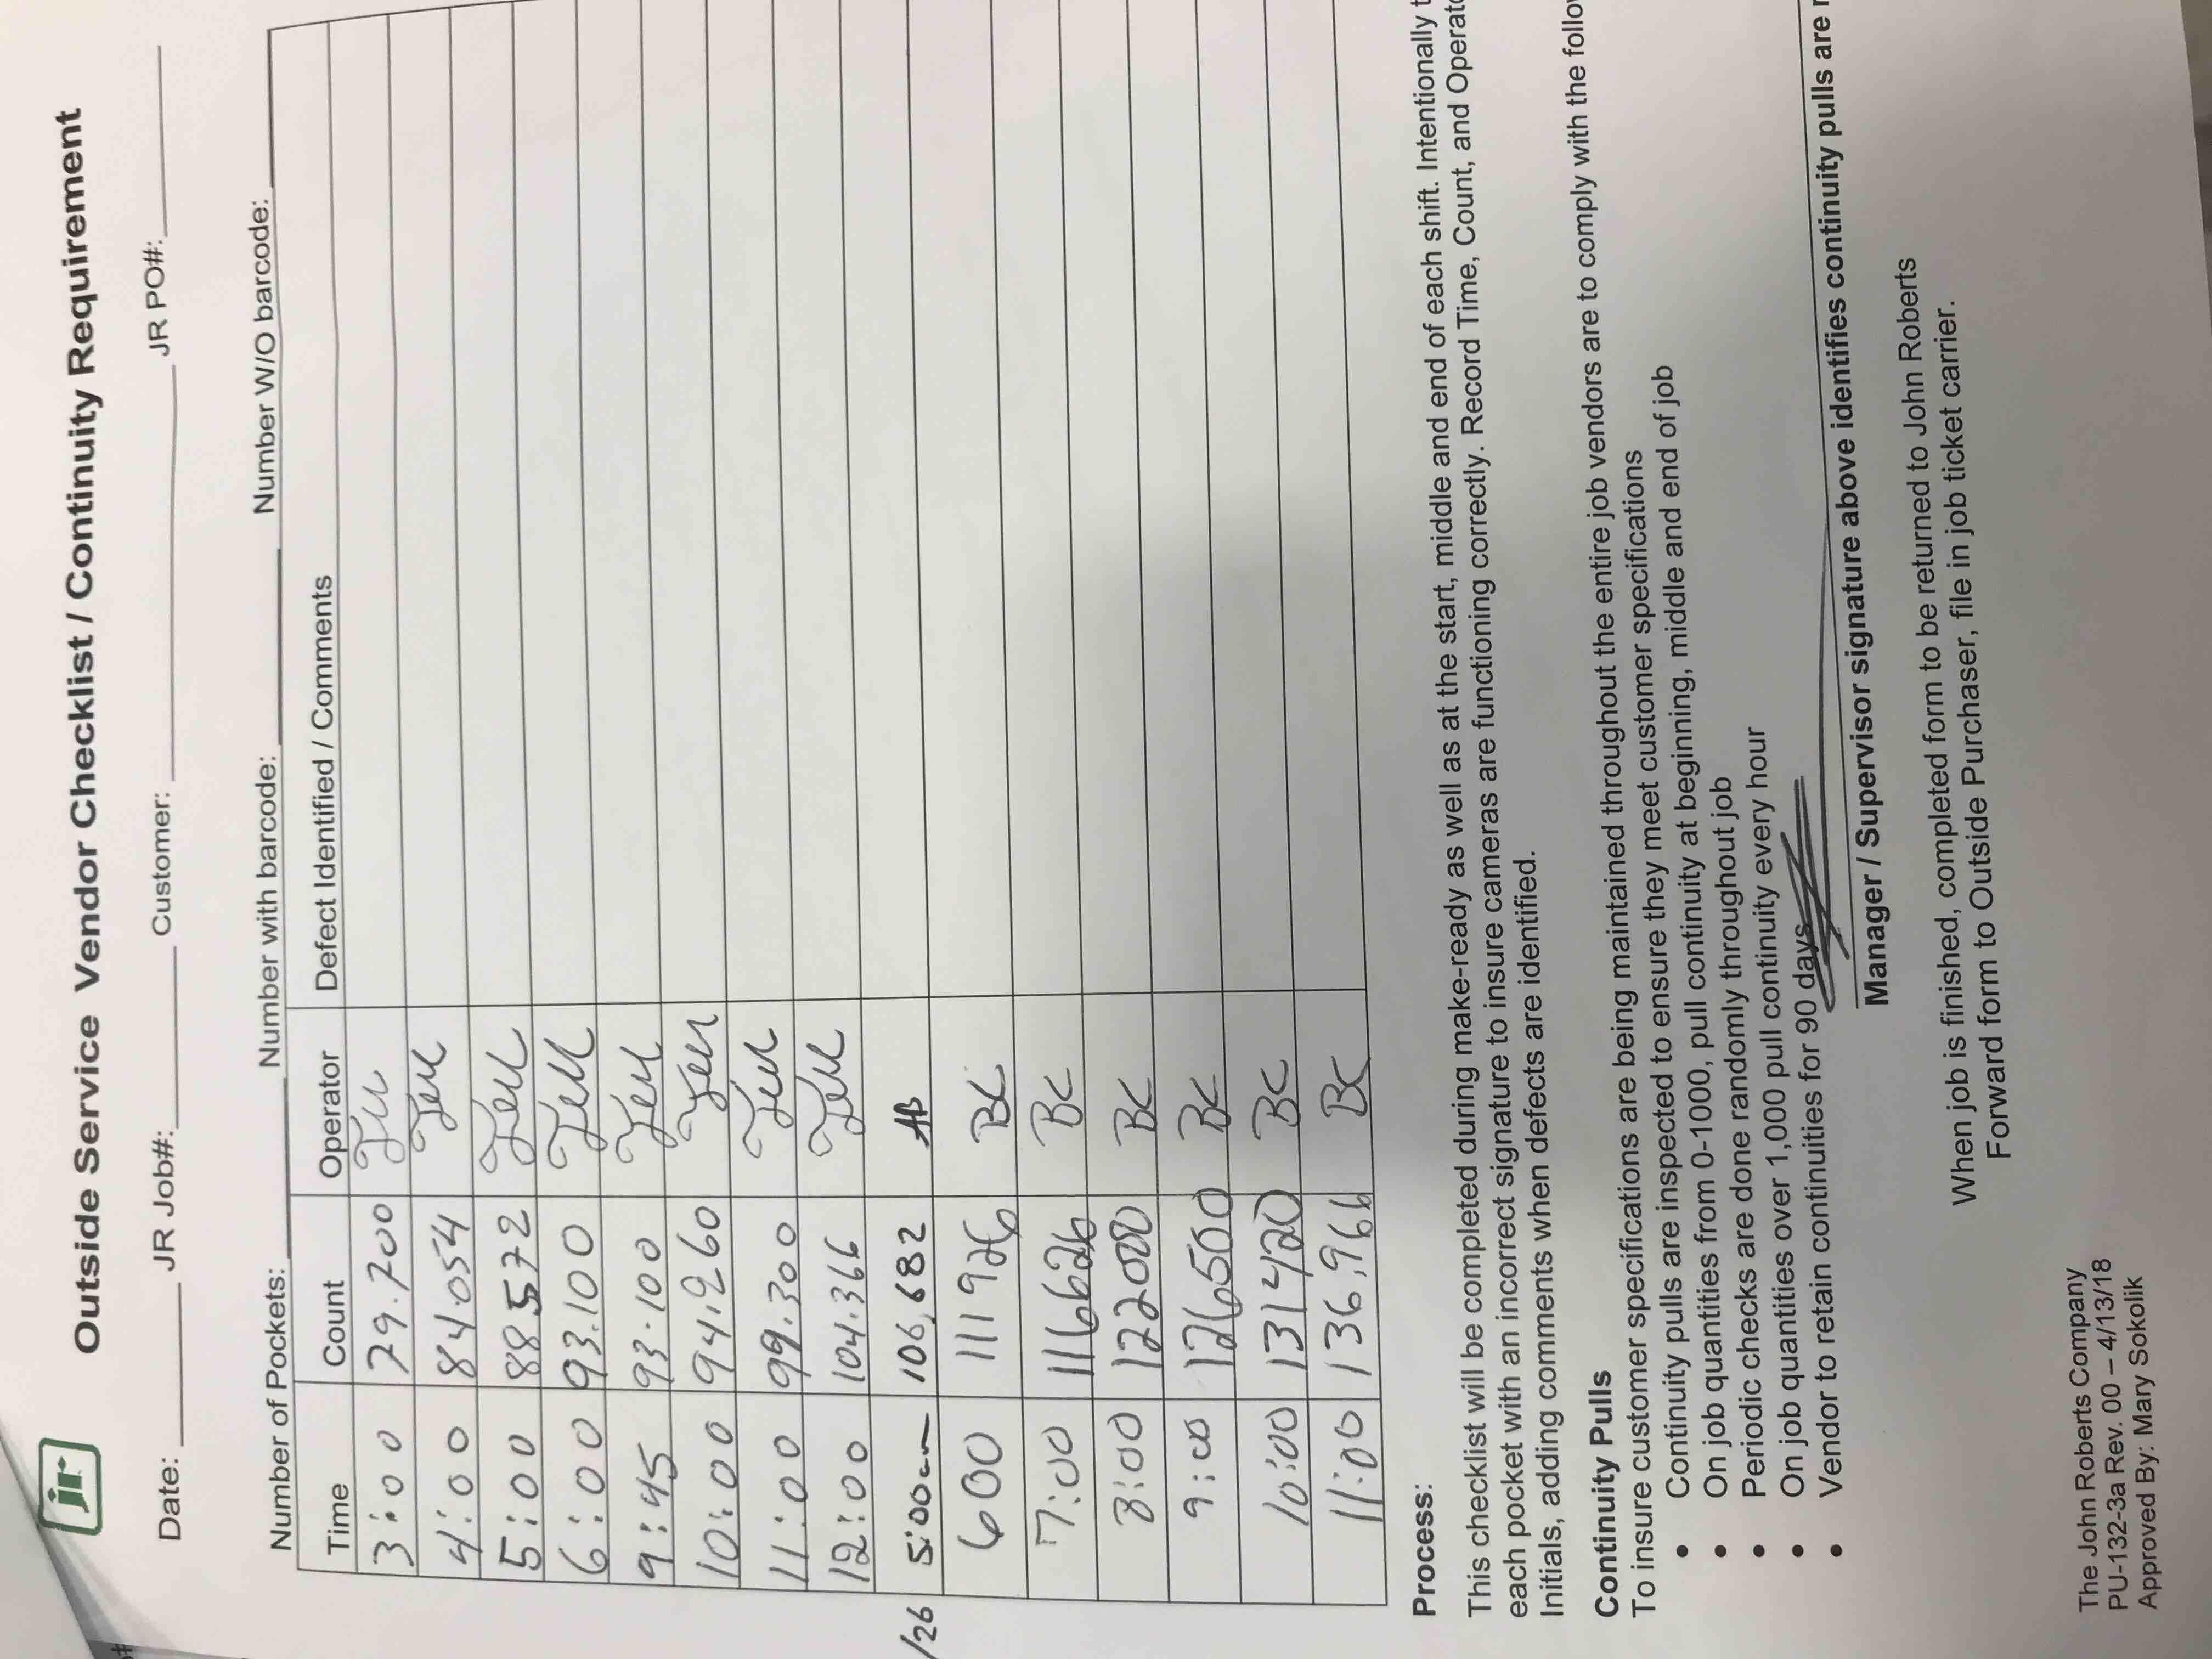 jr
Outside Service Vendor Checklist / Continuity Requirement
Date: JR Job#: Customer: JR PO#:
Number of Pockets: Number with barcode: Number W/O barcode:
Time Count Operator Defect Identified / Comments
3:00 79.700
4:00 84.054
5:00 88.572
6:00 93.100
9:45 93.100
10:00 94.260
11:00 99.300
12:00 104.366
/26 5:00am 106,682 AB
600 111926 BC
7:00 116626 BC
8:00 122000 BC
9:00 126500 BC
10:00 131420 BC
11:00 136,966 BC
Process:
This checklist will be completed during make-ready as well as at the start, middle and end of each shift. Intentionally
each pocket with an incorrect signature to insure cameras are functioning correctly. Record Time, Count, and Operat
Initials, adding comments when defects are identified.
Continuity Pulls
To insure customer specifications are being maintained throughout the entire job vendors are to comply with the follo
• Continuity pulls are inspected to ensure they meet customer specifications
• On job quantities from 0-1000, pull continuity at beginning, middle and end of job
• Periodic checks are done randomly throughout job
• On job quantities over 1,000 pull continuity every hour
• Vendor to retain continuities for 90 days
Manager / Supervisor signature above identifies continuity pulls are
When job is finished, completed form to be returned to John Roberts
Forward form to Outside Purchaser, file in job ticket carrier.
The John Roberts Company
PU-132-3a Rev. 00 – 4/13/18
Approved By: Mary Sokolik